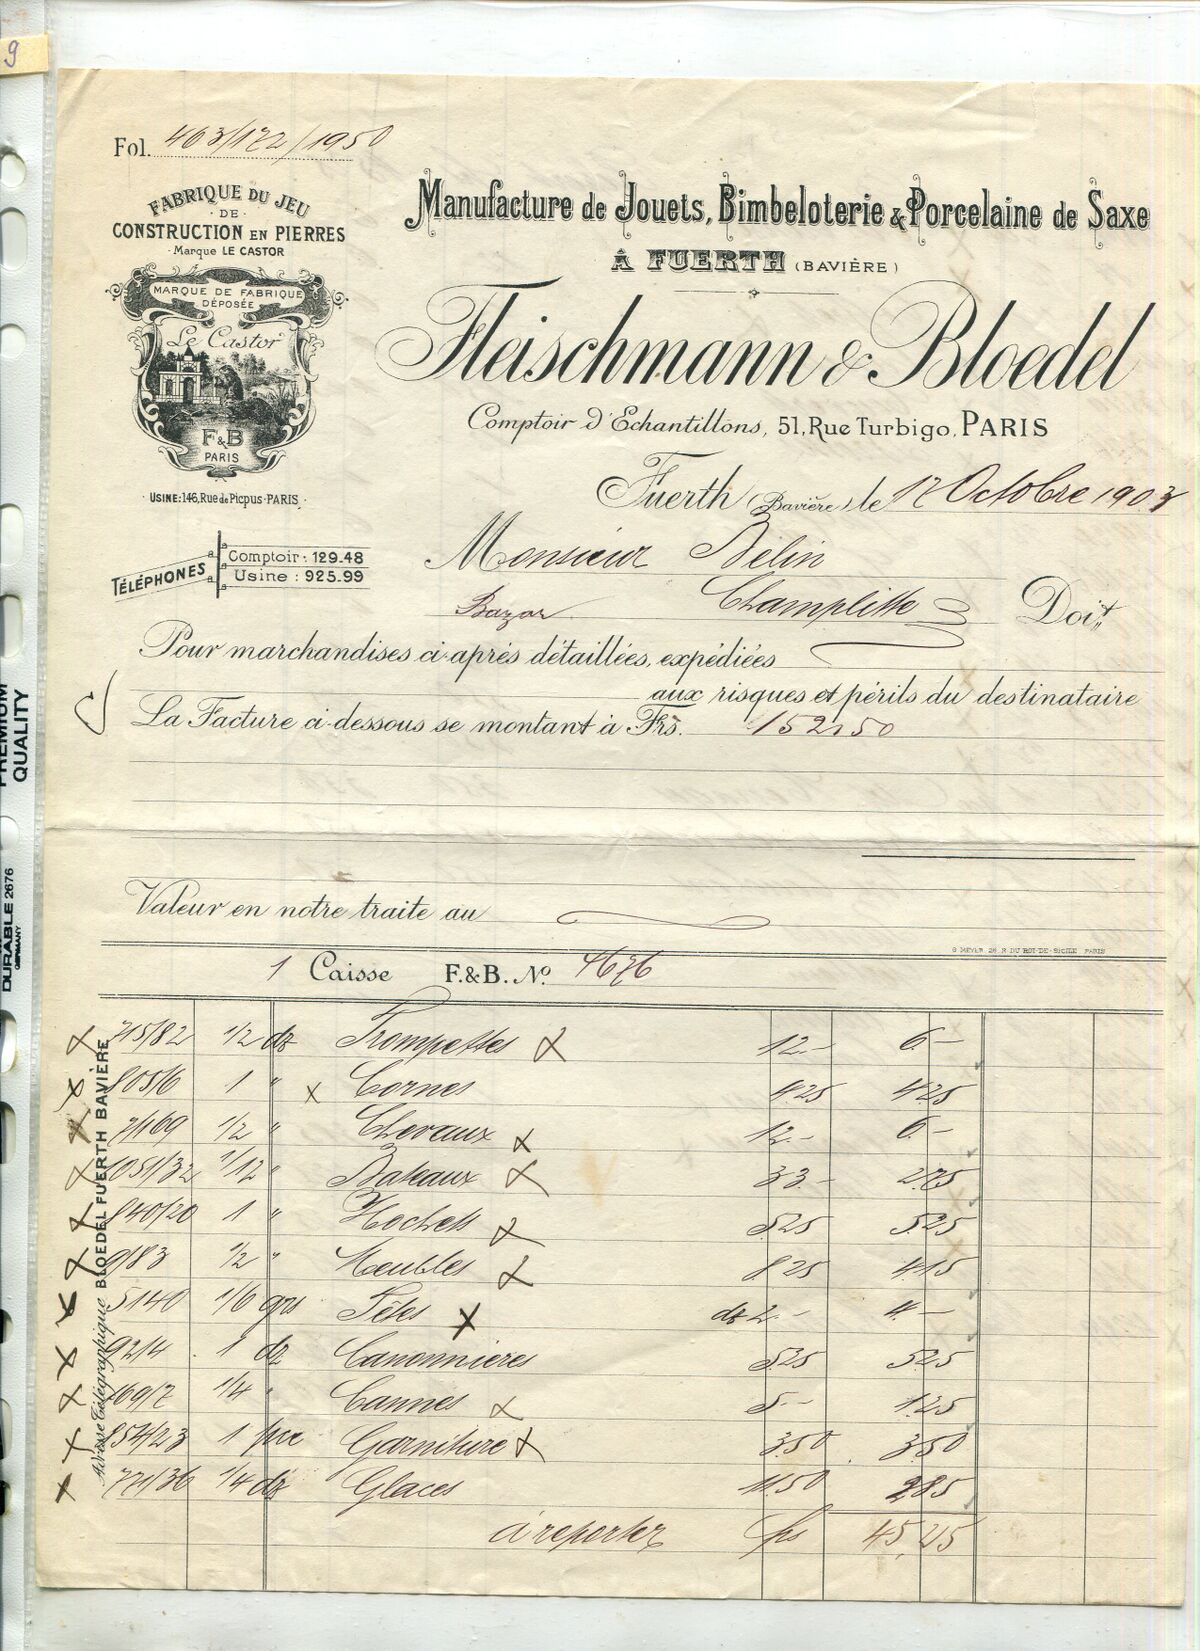 9
Fol. 463/122/1950
FABRIQUE DU JEU
DE
CONSTRUCTION EN PIERRES
Marque LE CASTOR
MARQUE DE FABRIQUE
DÉPOSÉE
Le Castor
F&B
PARIS
USINE: 146, Rue de Picpus - PARIS
TÉLÉPHONES
Comptoir: 129.48
Usine: 925.99
Manufacture de Jouets, Bimbeloterie & Porcelaine de Saxe
À FUERTH (BAVIÈRE)
Fleischmann & Bloedel
Comptoir d'Echantillons, 51, Rue Turbigo, PARIS
Fuerth (Bavière), le 12 Octobre 1903
Monsieur Bélin
Bazar Champlitte Doit
Pour marchandises ci-après détaillées, expédiées
aux risques et périls du destinataire
La Facture ci-dessous se montant à Frs. 152.50
Valeur en notre traite au
G. MEYER, 26, R. DU ROI-DE-SICILE PARIS
1 Caisse F.&B. No. 4676
715/82 1/2 dz Trompettes 12.- 6.-
805/6 1 " Cornes 4 25 4 25
7/169 1/2 " Chevaux 12.- 6.-
1051/32 1/12 " Bateaux 33.- 2.75
840/20 1 " Hochets 5.25 5.25
9/83 1/2 " Meubles 8 25 4.15
5140 1/6 grs Têtes dz 2.- 4.-
9214 1 dz Canonnières 5.25 5.25
169/7 1/4 " Cannes 5.- 1.25
854/23 1 pce Garniture 3.50 3.50
771/36 1/4 dz Glaces 11.50 2 85
à reporter frs 45,25
Adresse Télégraphique BLOEDEL FUERTH BAVIÈRE
PREMIUM
QUALITY
DURABLE 2676
GERMANY